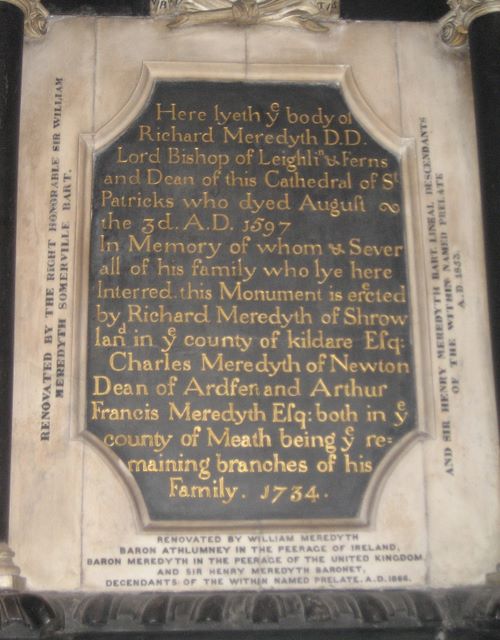 Here lyeth yᵉ body of
Richard Meredyth D.D.
Lord Bishop of Leighliⁿ & Ferns
and Dean of this Cathedral of Sᵗ
Patricks who dyed Auguſt
the 3d. A.D. 1597
In Memory of whom & Sever
all of his family who lye here
Interred. this Monument is erected
by Richard Meredyth of Shrow
lanᵈ in yᵉ county of kildare Eſq:
Charles Meredyth of Newton
Dean of Ardfert and Arthur
Francis Meredyth Eſq: both in yᵉ
county of Meath being yᵉ re-
maining branches of his
Family. 1734.
RENOVATED BY THE RIGHT HONORABLE SIR WILLIAM
MEREDYTH SOMERVILLE BART.
AND SIR HENRY MEREDYTH BART. LINEAL DESCENDANTS
OF THE WITHIN NAMED PRELATE
A.D. 1853.
RENOVATED BY WILLIAM MEREDYTH
BARON ATHLUMNEY IN THE PEERAGE OF IRELAND,
BARON MEREDYTH IN THE PEERAGE OF THE UNITED KINGDOM,
AND SIR HENRY MEREDYTH BARONET,
DECENDANTS OF THE WITHIN NAMED PRELATE. A.D. 1866.